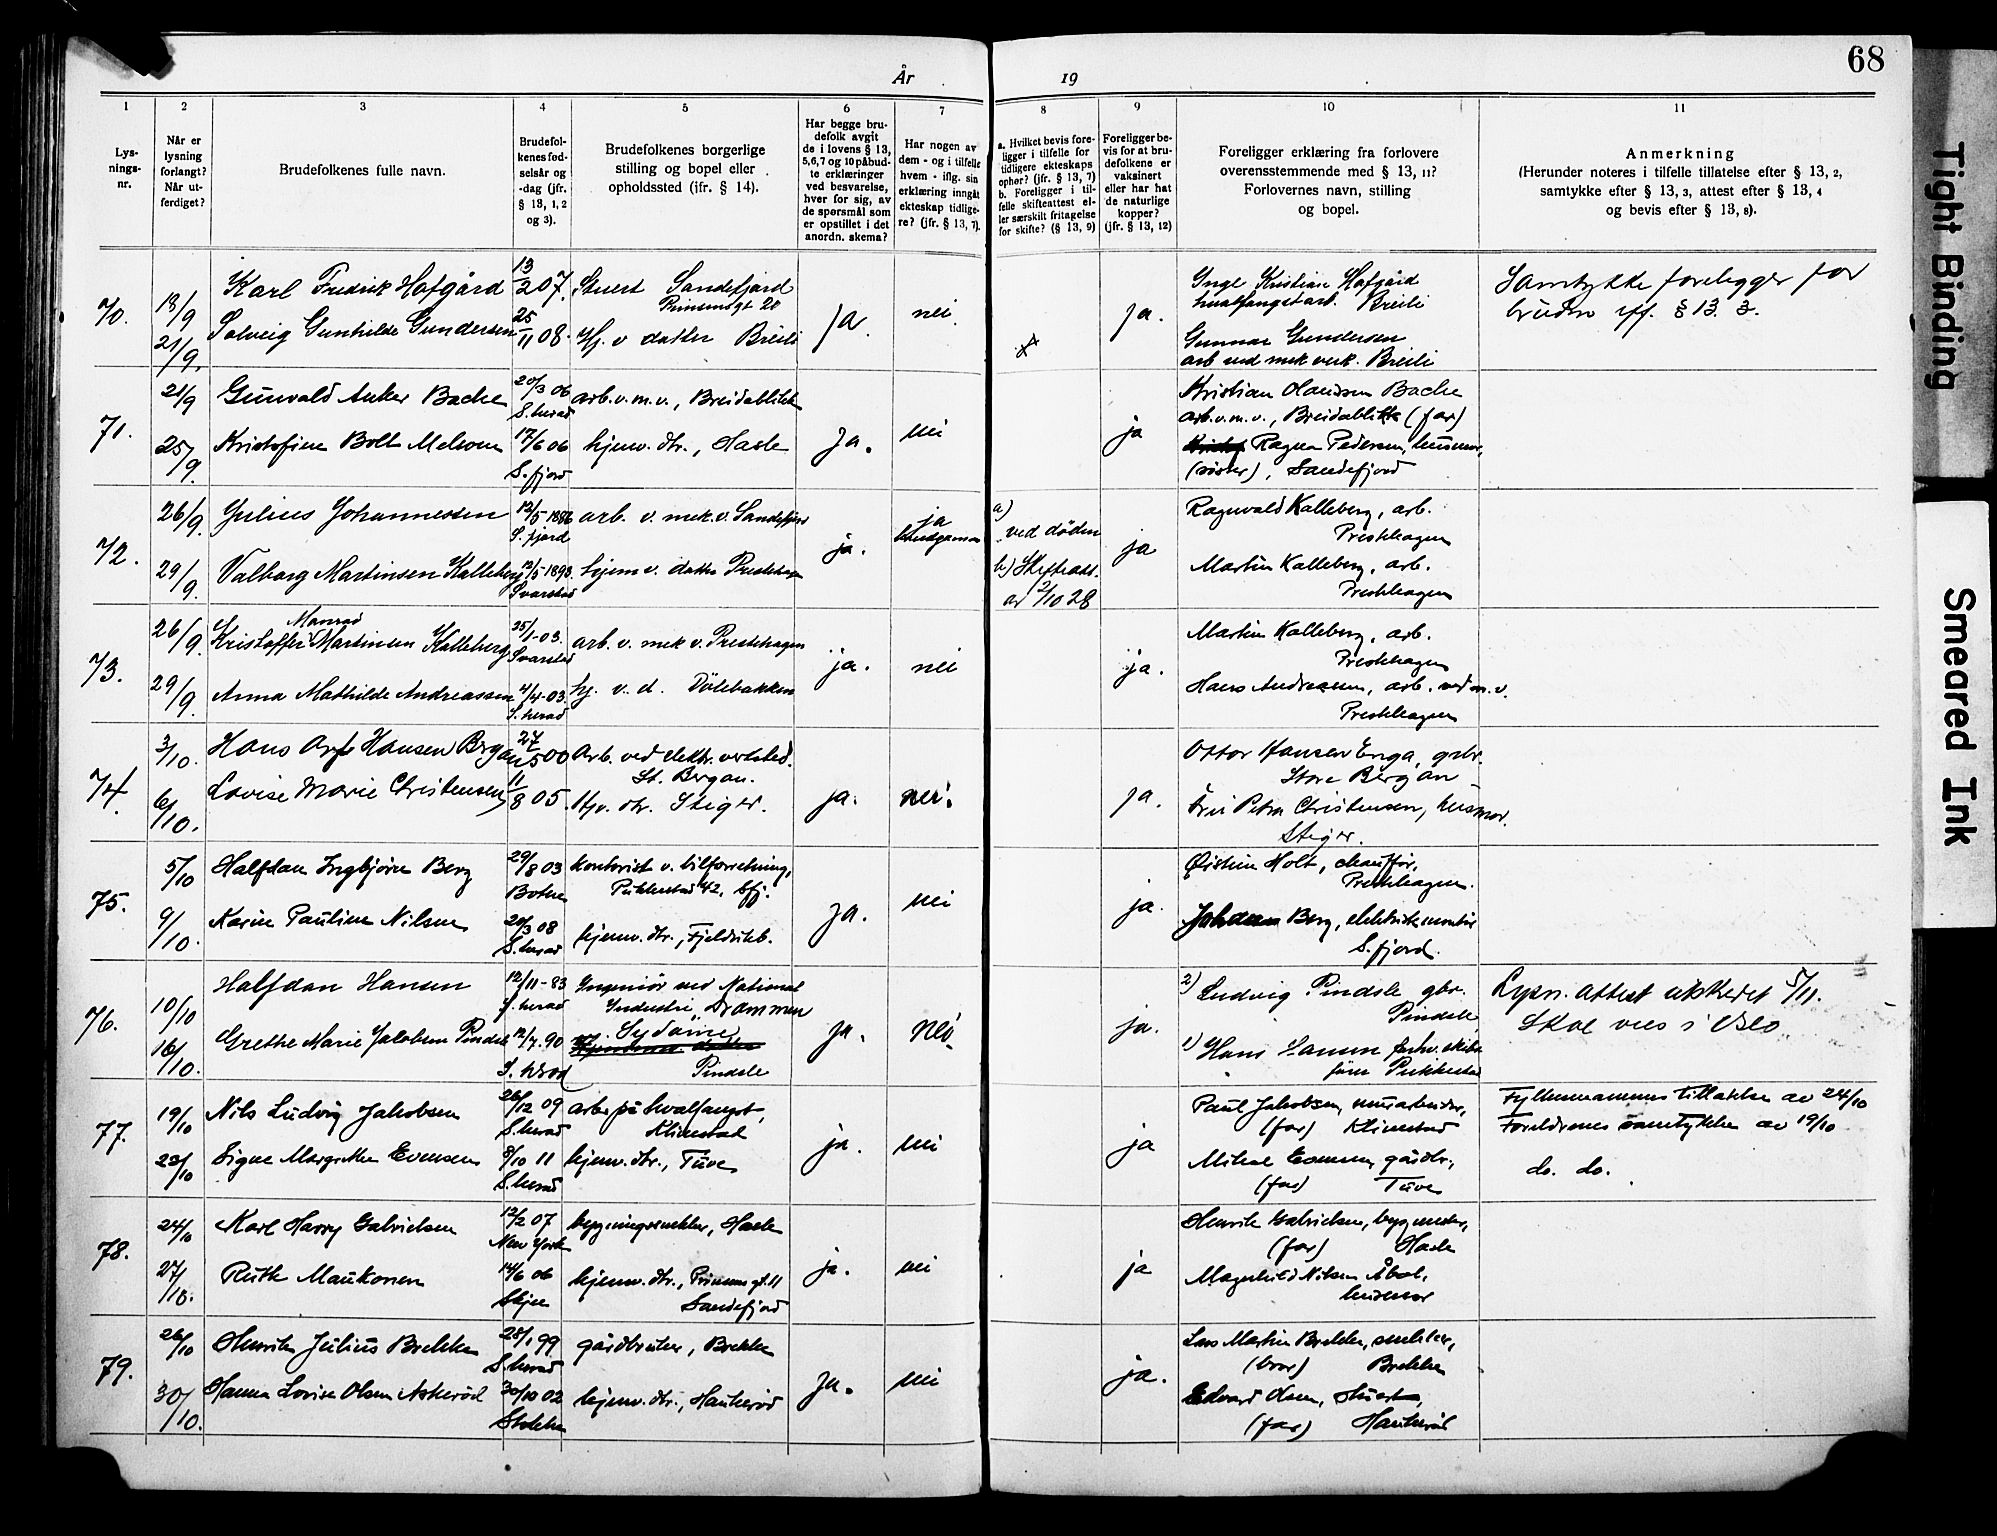 År 19
68
1
2
3
4
5
6
7
8
9
10
11
Lys-
nings-
nr.
Når er
lysning
forlangt?
Når ut-
ferdiget?
Brudefolkenes fulle navn.
Brudefol-
kenes fød-
selsår og
-dag (jfr.
§ 13, 1, 2
og 3).
Brudefolkenes borgerlige
stilling og bopel eller
opholdssted (ifr. § 14).
Har begge bru-
defolk avgit
de i lovens § 13,
5,6,7 og 10 påbud-
te erklæringer
ved besvarelse,
hver for sig, av
de spørsmål som
er opstillet i det
anordn. skema?
Har nogen av
dem - og i tilfelle
hvem - iflg. sin
erklæring inngåt
ekteskap tidlige-
re? (jfr. § 13, 7).
a. Hvilket bevis fore-
ligger i tilfelle for
tidligere ekteskaps
ophør? (jfr. § 13, 7)
b. Foreligger i til-
felle skifteattest el-
ler særskilt fritagelse
for skifte? (§ 13, 9)
Foreligger be-
vis for at bru-
defolkene er
vaksinert
eller har hat
de naturlige
kopper?
(jfr. § 13, 12)
Foreligger erklæring fra forlovere
overensstemmende med § 13, 11?
Forlovernes navn, stilling
og bopel.
Anmerkning
(Herunder noteres i tilfelle tillatelse efter § 13, 2,
samtykke efter § 13, 3, attest efter § 13, 4
og bevis efter § 13, 8).
70.
18/9
21/9.
Karl Fredrik Hafgård
Solveig Gunhilde Gundersen
13/2 07.
25/11 08.
Stuert Sandefjord
Prinsensgt 20
Hj. v datter Breili
Ja.
nei.
ja.
Inge Kristian Hafgård
hvalfangstarb. Breili
Gunnar Gundersen
arb ved mek verk. Breili
Samtykke foreligger for
bruden jff. § 13. 3.
71.
21/9
25/9.
Gunvald Anker Bache
Kristofine Bolt Melsom
20/3 06
S.herad
17/6 06
S.fjord
arb. v. m. v., Breidablikk
hjemv. dtr., Hasle
Ja.
nei
ja
Kristian Hansen Bache
arb. v. m. v., Breidablikk (far)
Ragna Pedersen, husmor,
(søster), Sandefjord
72.
26/9.
29/9.
Julius Johannessen
Valborg Martinsen Kalleberg
12/5-1886
S.fjord
12/5-1898.
Svarstad
arb. v. mek. v. Sandefjord
hjem v. datter Prestehagen
ja.
ja
brudgommen
a)
ved døden
b) Skifteatt.
av 2/10 28
ja
Ragnvald Kalleberg, arb.
Prestehagen
Martin Kalleberg, arb.
Prestehagen
73.
26/9.
29/9.
Kristoffer Martinsen Kalleberg
Anna Mathilde Andreassen
25/1-03.
Svarstad
4/4-03.
S.herad
arb. v. mek v. Prestehagen
hj. v. d. Dølebakken
ja.
nei
ja.
Martin Kalleberg, arb.
Prestehagen
Hans Andreassen, arb. ved m. v.
Prestehagen
74.
3/10.
6/10.
Hans Arf Hansen Bergan
Lovise Marie Christensen
27/5 00
11/8 05.
Arb. ved elektr. verksted.
St. Bergan.
Hjv. dtr. Steger.
ja.
nei.
ja.
Ottar Hansen Enga, grbr.
Store Bergan
Fru Petra Christensen, husmor.
Steger.
75.
5/10
9/10.
Halfdan Ingbjørn Berg
Karin Pauline Nilsen
29/8 03
Botne
20/3 08
S.herad
kontorist v. bilforretning,
Pukkestad 42, Sfj.
hjemv. dtr., Fjeldvikb.
Ja.
nei
ja.
Øistein Holt, chauffør,
Prestehagen.
Johan Berg, elektrisk montør
S.fjord.
76.
10/10
16/10.
Halfdan Hansen
Grethe Marie Jakobsen Pindsle
12/11-83
S.herad
12/7.90
S. herad
Ingeniør ved National
Industrie, Drammen
Sydame
Pindsle
Ja.
Nei.
ja.
2) Ludvig Pindsle gbr.
Pindsle
1) Hans Hansen forhv. skibs
fører Pukkestad
Lysn. attest utstedt 5/11.
Skal vies i Oslo
77.
19/10
23/10
Nils Ludvig Jakobsen
Signe Margrethe Evensen
26/12 09
S.herad
8/10 11
S.herad
arb. på hvalfangst,
Klinestad
hjemv. dtr., Tuve
ja.
nei
ja
Paul Jakobsen, murarbeider,
(far) Klinestad
Mikal Evensen, gårdbr.,
(far) Tuve
Fylkesmannens tillatelse av 24/10
Foreldrenes samtykke av 19/10
do. do.
78.
24/10
27/10.
Karl Harry Gabrielsen
Ruth Maukonen
12/2 07
New York
14/6 06
Skjee
bygningssnekker, Hasle
hjemv. dtr., Prinsens gt. 11
Sandefjord
ja.
nei
ja
Henrik Gabrielsen, bygmester,
(far) Hasle
Magnhild Nilsen Åbol,
husmor
79.
26/10
30/10.
Henrik Julius Brekke
Hanna Lovise Olsen Askerød
28/1 99
S.herad
30/10 02
Stokke
gårdbruker, Brekke
hjemv. dtr., Haukerød
Ja.
nei
ja.
Lars Martin Brekke, snekker,
(bror) Brekke
Edvard Olsen, Stuert,
(far) Haukerød
Tight Binding
Smeared Ink